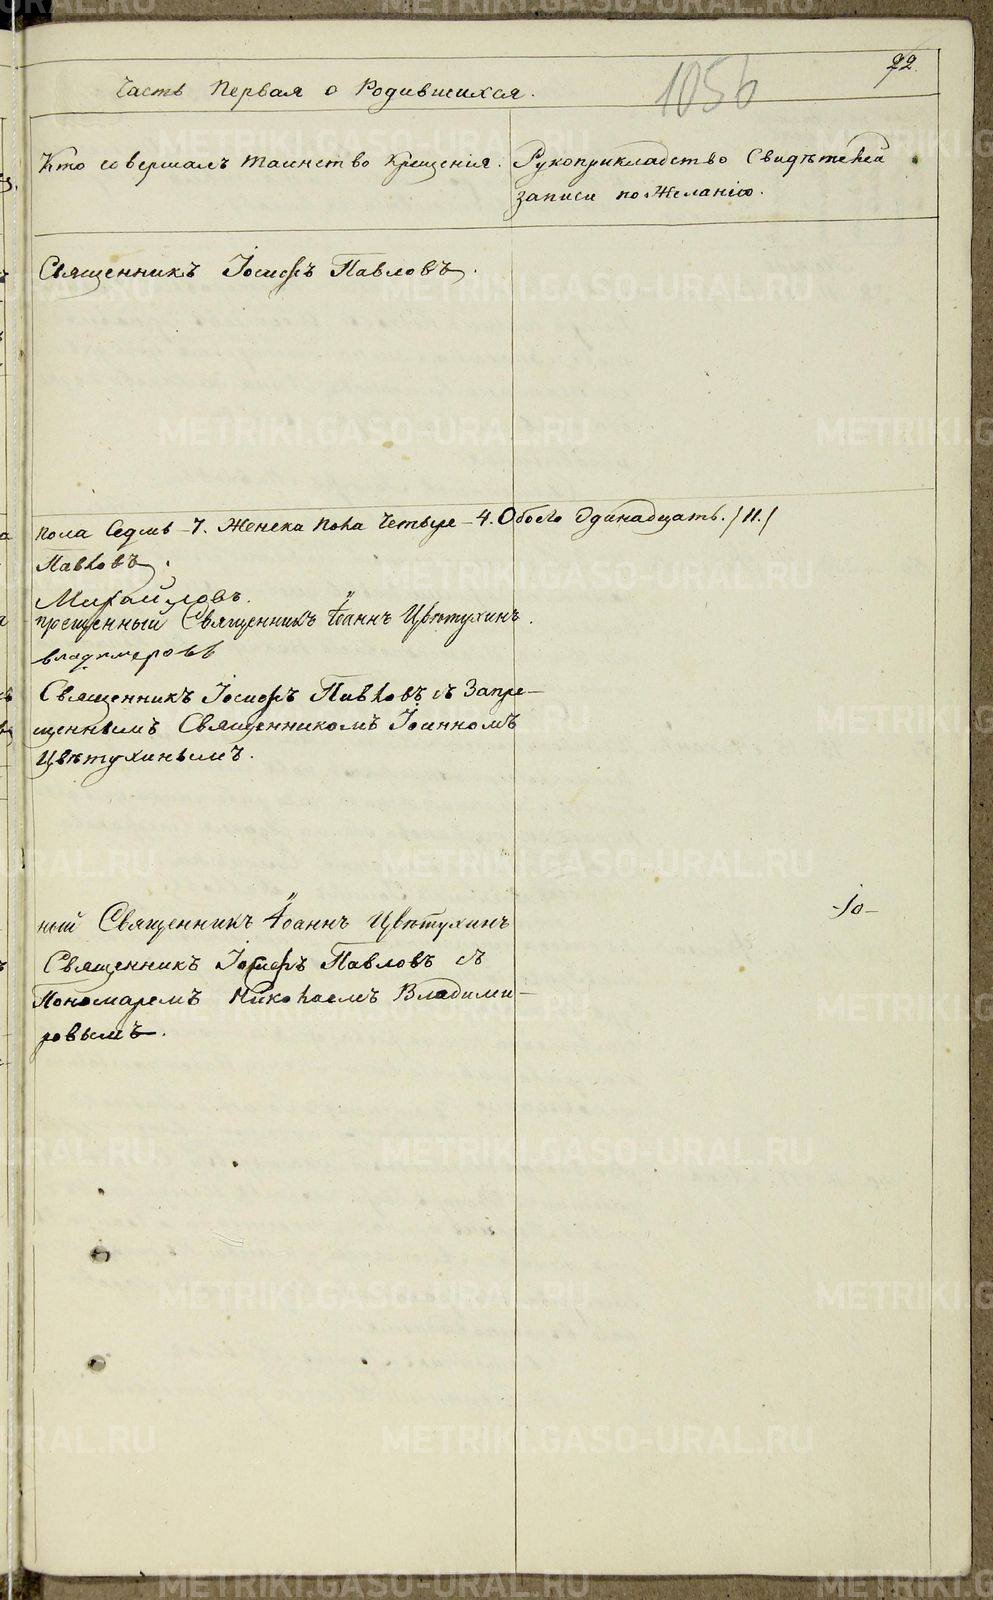 22
Часть Первая о Родившихся.
1056
Кто совершалъ таинство Крещенія.
Рукоприкладство Свидѣтелей
записи по Желанію.
Священникъ Іосифъ Павловъ.
пола Седмь - 7. Женска пола Четыре - 4. Обоего Одинадцать. / 11. /
Павловъ.
Михайловъ.
прещенный Священникъ Іоаннъ Цвѣтухинъ.
Владимеровъ
Священникъ Іосифъ Павловъ съ Запре-
щеннымъ Священникомъ Іоанномъ
Цвѣтухинымъ.
ный Священникъ Іоаннъ Цвѣтухинъ
-10-
Священникъ Іосифъ Павловъ съ
Пономаремъ Николаемъ Владими-
ровымъ.
METRIKI.GASO-URAL.RU